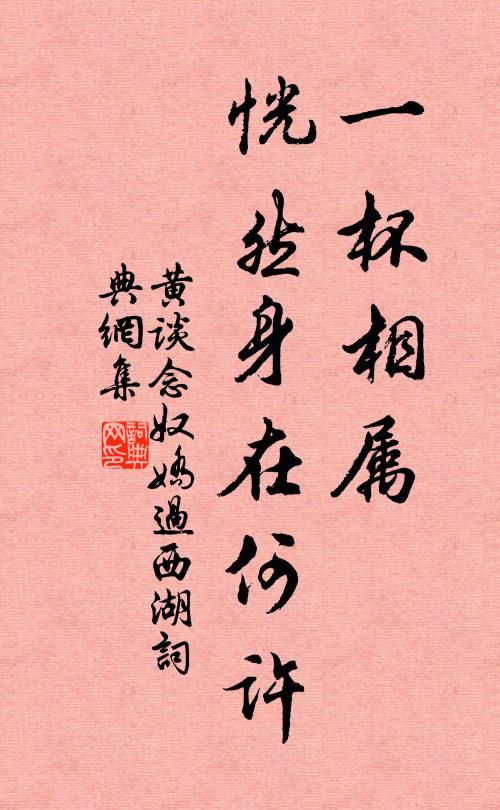 一杯相属
恍然身在何许
黄谈念奴娇過西湖詞
典網集
詞典
网印